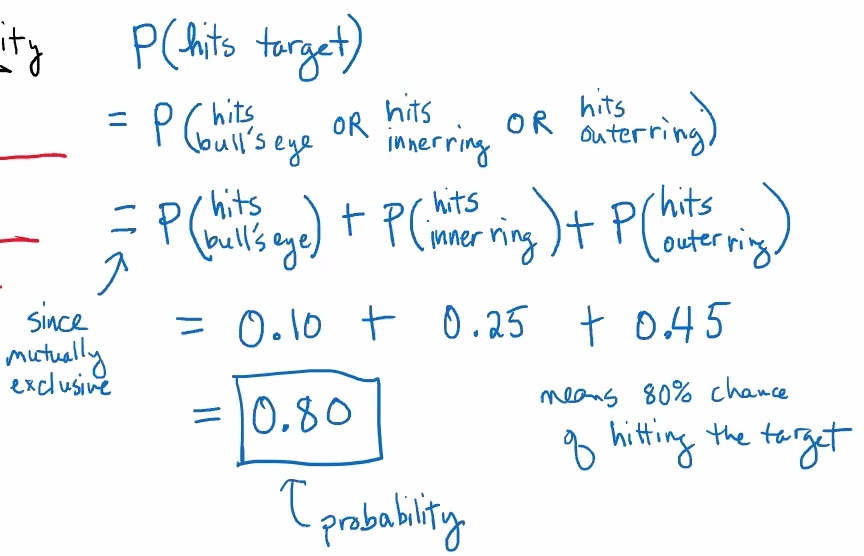 ity
P(hits target)
= P(hits bull's eye OR hits inner ring OR hits outer ring)
= P(hits bull's eye) + P(hits inner ring) + P(hits outer ring)
since
mutually
exclusive
= 0.10 + 0.25 + 0.45
= 0.80
means 80% chance
of hitting the target
probability